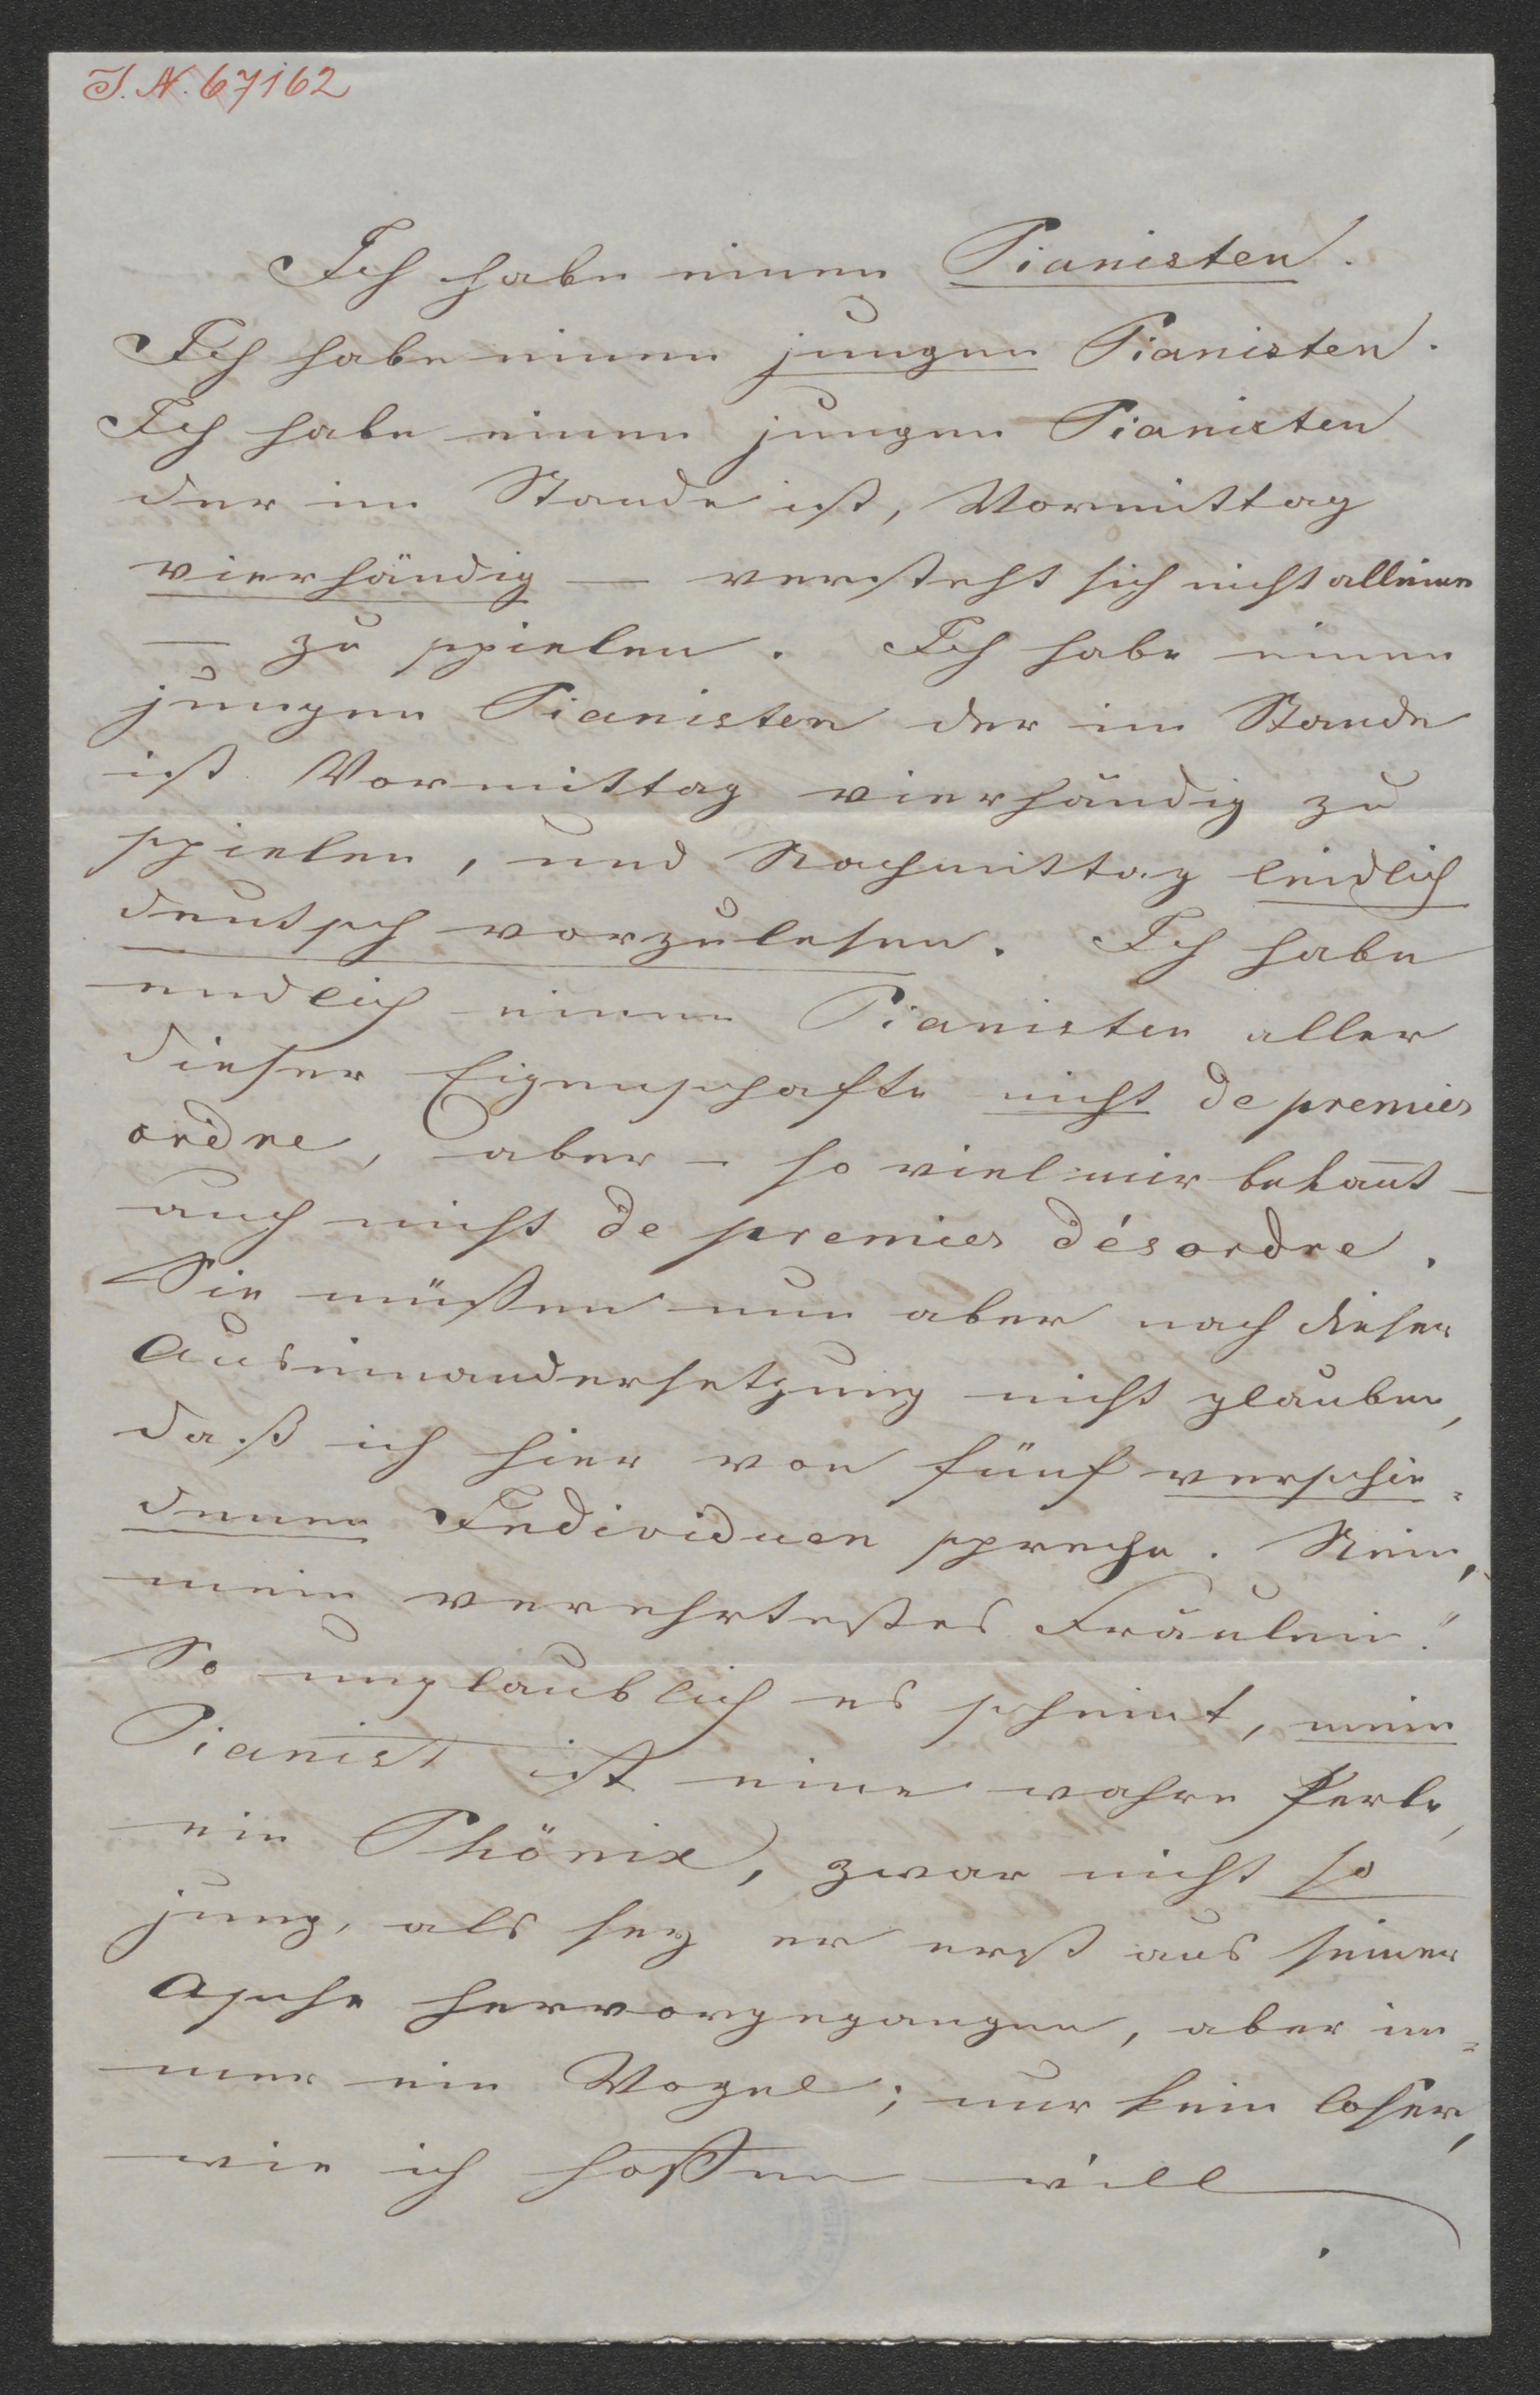 I. N. 67162
Ich habe einen Pianisten.
Ich habe einen jungen Pianisten.
Ich habe einen jungen Pianisten
der im Stande ist, Vormittag
vierhändig — versteht sich nicht alleine
— zu spielen. Ich habe einen
jungen Pianisten der im Stande
ist Vormittag vierhändig zu
spielen, und Nachmittag leidlich
deutsch vorzulesen. Ich habe
endlich einen Pianisten aller
dieser Eigenschafte nicht de premier
ordre, aber – so viel mir bekan̅t –
auch nicht de premier désordre.
Sie müssen nun aber nach dieser
Auseinandersetzung nicht glauben,
daß ich hier von fünf verschie=
denen Individuen spreche. Nein,
mein verehrtestes Fräulein!
So unglaublich es scheint, mein
Pianist ist eine wahre Perle,
ein Phönix, zwar nicht so
jung, als sey er erst aus seiner
Asche hervorgegangen, aber im=
mer ein Vogel; nur kein loser,
wie ich hoffen will.